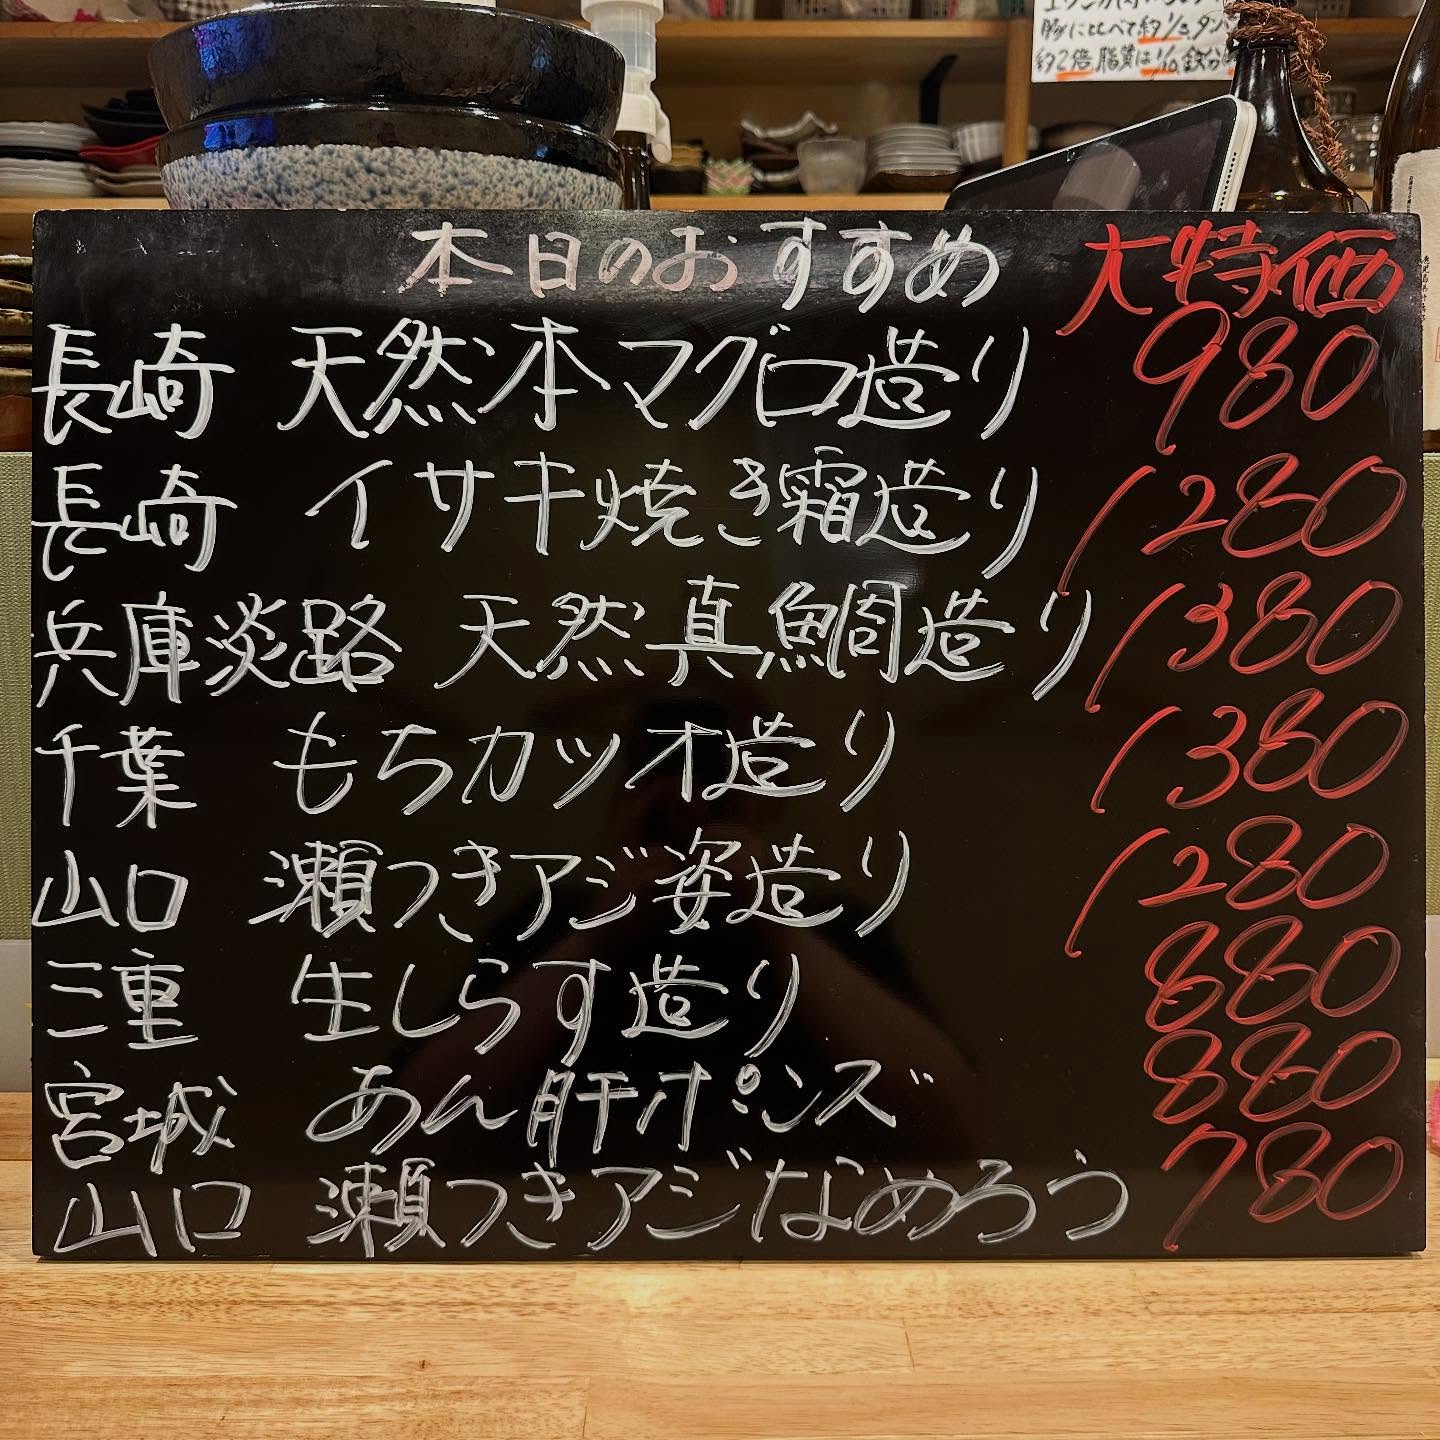 豚に比べて約1/3、タン
約2倍 脂質は1/10 鉄分
本日のおすすめ 大特価
長崎 天然本マグロ造り 980
長崎 イサキ焼き霜造り 1280
兵庫淡路 天然真鯛造り 1380
千葉 もちカツオ造り 1380
山口 瀬つきアジ姿造り 1280
三重 生しらす造り 880
宮城 あん肝ポンズ 880
山口 瀬つきアジなめろう 780